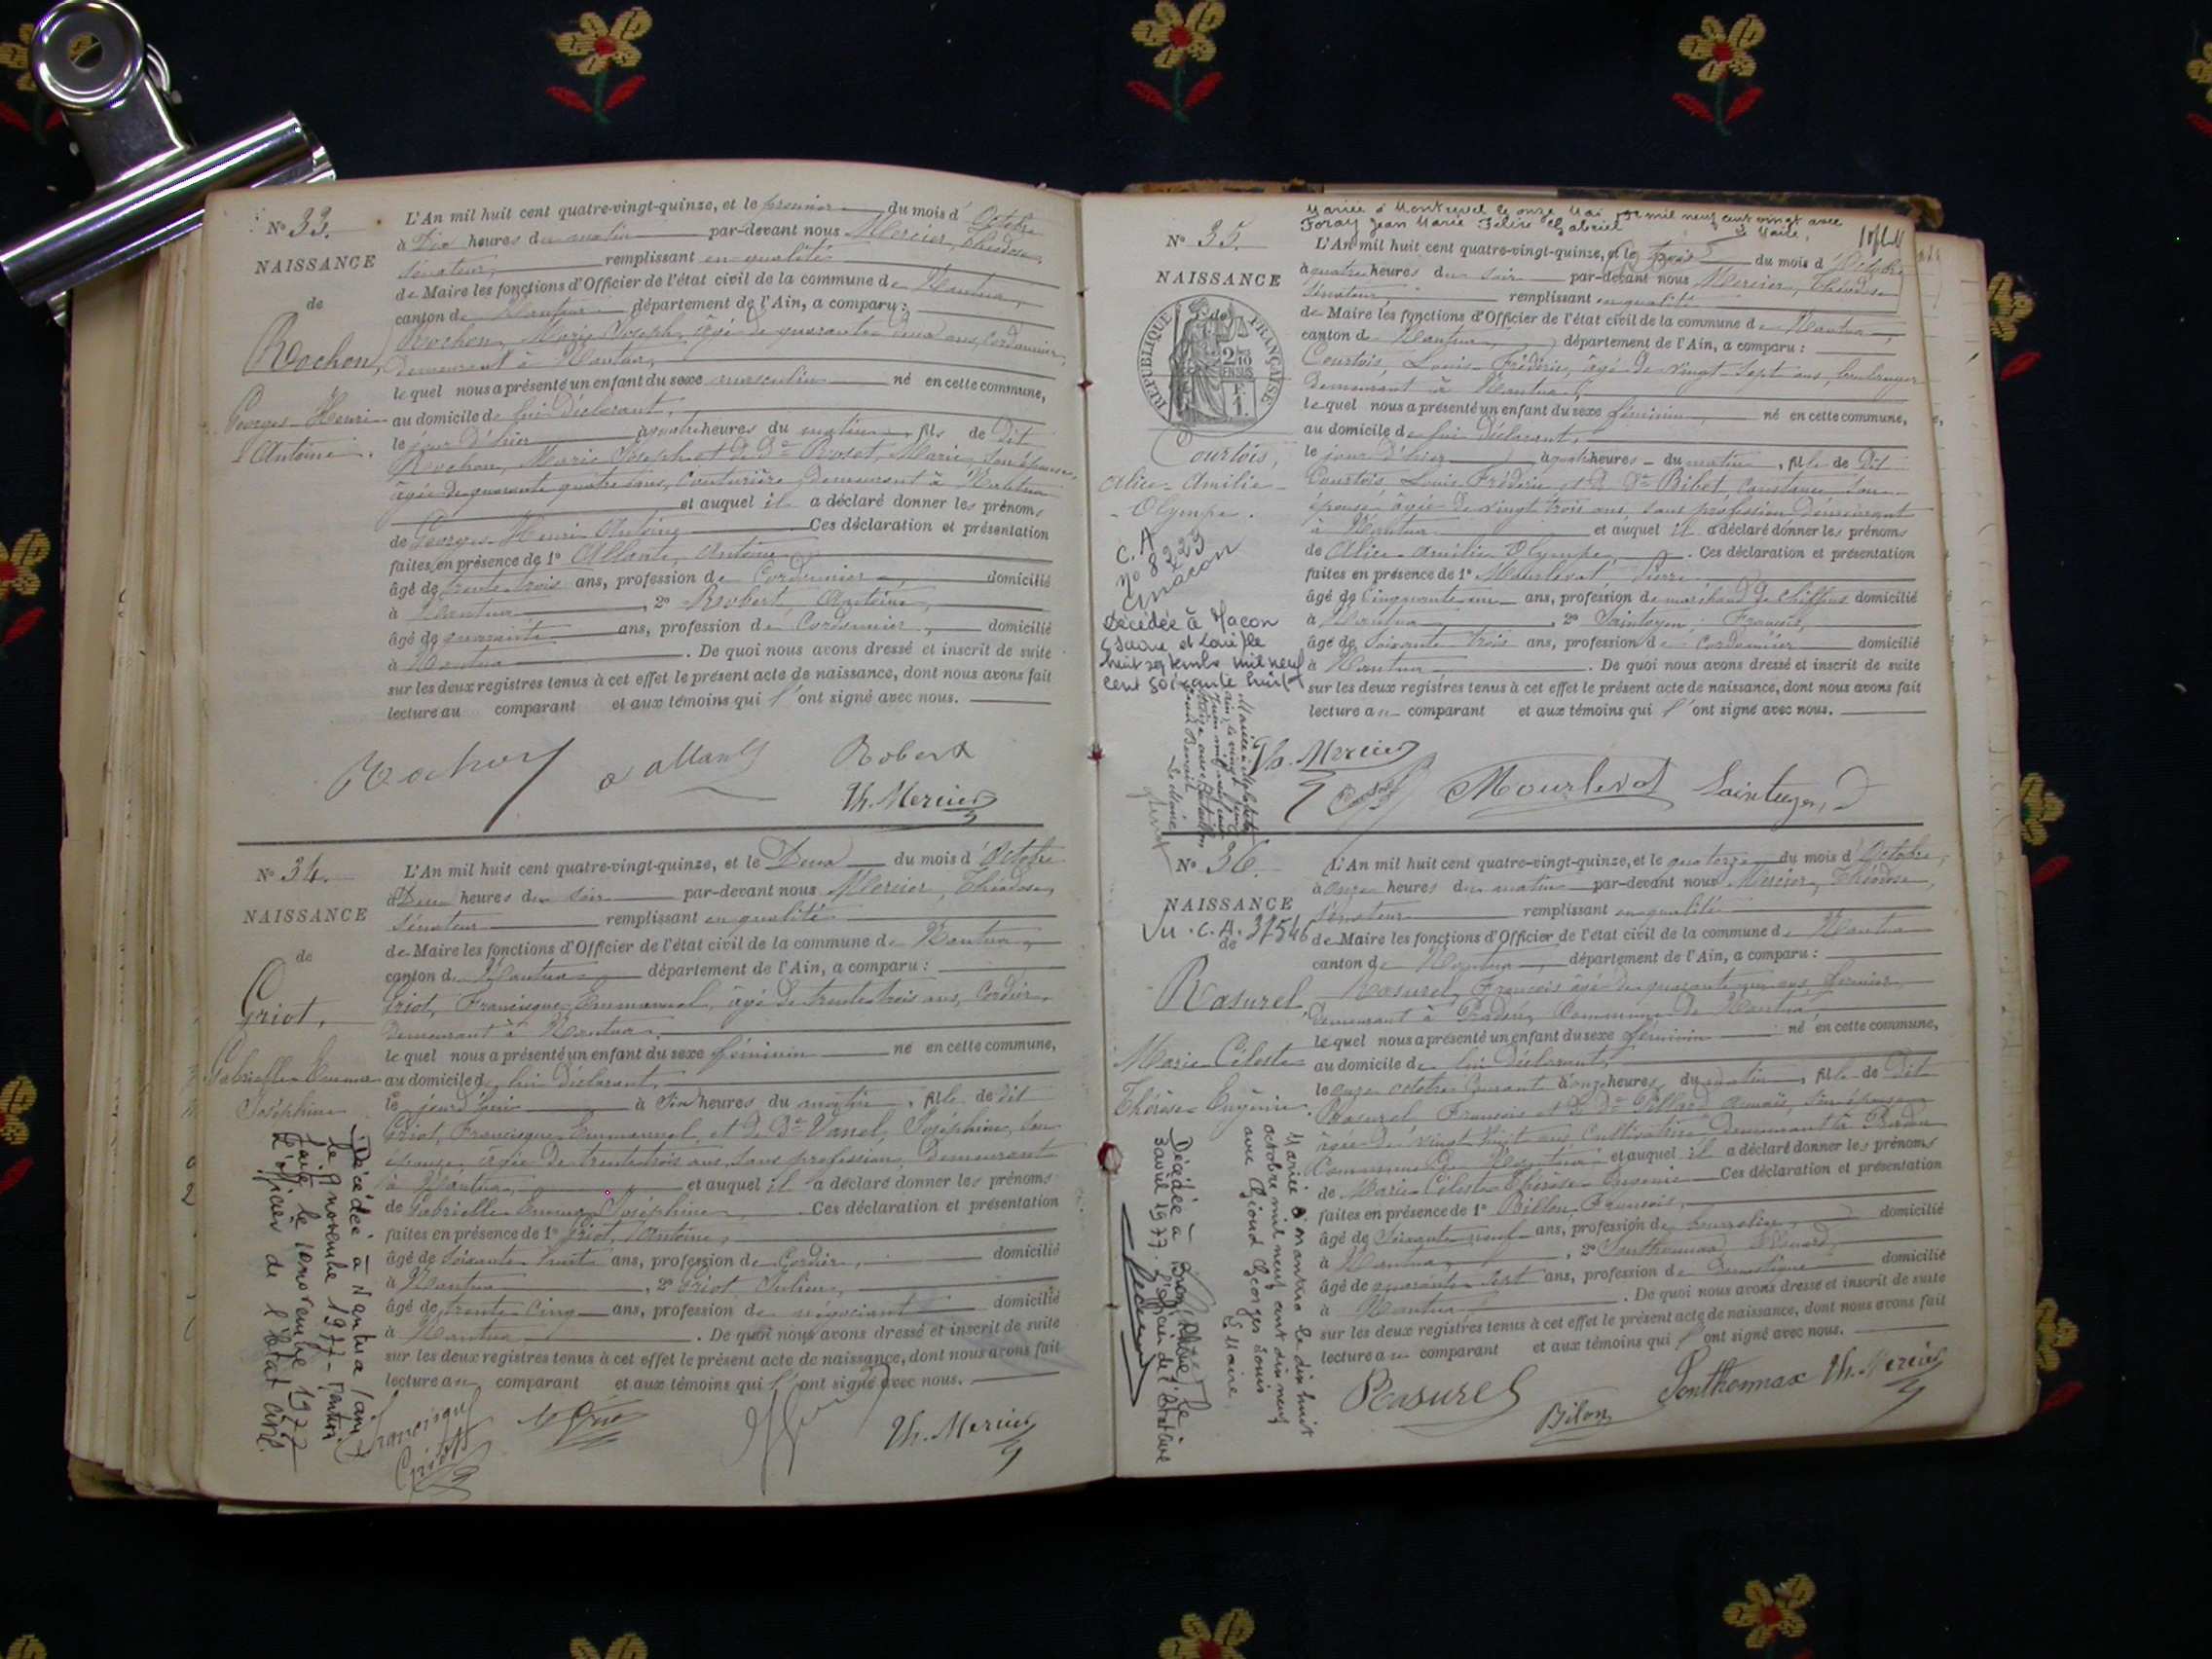 N° 33.
NAISSANCE
de
Rochon,
Georges Henri
Antoine.
L'An mil huit cent quatre-vingt-quinze, et le premier du mois d'Octobre
à Dix heures du matin par-devant nous Mercier, Théodose,
Sénateur, remplissant en qualité
de Maire les fonctions d'Officier de l'état civil de la commune de Nantua,
canton de Nantua département de l'Ain, a comparu :
Rochon, Marie Joseph, âgé de quarante deux ans, Cordonnier,
demeurant à Nantua,
lequel nous a présenté un enfant du sexe masculin né en cette commune,
au domicile de lui déclarant,
le jour d'hier à quatre heures du matin, fils de dit
Rochon, Marie Joseph et de De Marie son épouse,
âgée de quarante quatre ans, Couturière demeurant à Nantua
et auquel il a déclaré donner les prénoms
de Georges Henri Antoine Ces déclaration et présentation
faites en présence de 1° Antoine
âgé de trente trois ans, profession de Cordonnier, domicilié
à Nantua, 2° Robert Antoine,
âgé de quarante ans, profession de Cordonnier, domicilié
à Nantua. De quoi nous avons dressé et inscrit de suite
sur les deux registres tenus à cet effet le présent acte de naissance, dont nous avons fait
lecture au comparant et aux témoins qui l'ont signé avec nous.
Rochon
Robert
Th. Mercier
N° 34.
NAISSANCE
de
Griot,
Gabrielle Emma
Joséphine
Décédée à Nantua (Ain)
le 9 novembre 1977
le 10 novembre 1977
L'officier de l'état civil.
L'An mil huit cent quatre-vingt-quinze, et le Deux du mois d'Octobre
à Deux heures du soir par-devant nous Mercier, Théodose,
Sénateur remplissant en qualité
de Maire les fonctions d'Officier de l'état civil de la commune de Nantua,
canton de Nantua département de l'Ain, a comparu :
Griot, Francisque Emmanuel, âgé de trente trois ans, Cordier,
demeurant à Nantua,
lequel nous a présenté un enfant du sexe féminin né en cette commune,
au domicile de lui déclarant,
le jour d'hier à heures du matin, fille de dit
Griot, Francisque Emmanuel, et de De Vanel, Joséphine, son
épouse, âgée de trente trois ans, sans profession, demeurant
à Nantua, et auquel il a déclaré donner les prénoms
de Gabrielle Emma Joséphine Ces déclaration et présentation
faites en présence de 1° Griot, Antoine,
âgé de soixante huit ans, profession de Cordier, domicilié
à Nantua, 2° Griot Julien,
âgé de trente cinq ans, profession de négociant domicilié
à Nantua. De quoi nous avons dressé et inscrit de suite
sur les deux registres tenus à cet effet le présent acte de naissance, dont nous avons fait
lecture au comparant et aux témoins qui l'ont signé avec nous.
Francisque
Griot
Th. Mercier
Mariée à Montrevel le onze Mai mil neuf cent vingt avec
Foray Jean Marie Félix Gabriel
Le Maire,
N° 35.
NAISSANCE
de
RÉPUBLIQUE FRANÇAISE
Courtois,
Alice Amélie
Olympe.
C.A
N° 8223
Macon
Décédée à Macon
(Saône et Loire) le
huit septembre mil neuf
cent soixante huit
L'An mil huit cent quatre-vingt-quinze, et le trois du mois d'Octobre
à quatre heures du soir par-devant nous Mercier, Théodose
Sénateur, remplissant en qualité
de Maire les fonctions d'Officier de l'état civil de la commune de Nantua,
canton de Nantua, département de l'Ain, a comparu :
Courtois, Louis Frédéric, âgé de vingt sept ans, boulanger
demeurant à Nantua,
lequel nous a présenté un enfant du sexe féminin, né en cette commune,
au domicile de lui déclarant,
le jour d'hier à quatre heures du matin, fille de dit
Courtois, Louis Frédéric, et de De Bibet, Constance son
épouse âgée de vingt trois ans, sans profession demeurant
à Nantua et auquel il a déclaré donner les prénoms
de Alice Amélie Olympe. Ces déclaration et présentation
faites en présence de 1° Mourlevat Pierre
âgé de Cinquante ans, profession de marchand de chiffons domicilié
à Nantua, 2° François,
âgé de soixante trois ans, profession de Cordonnier domicilié
à Nantua. De quoi nous avons dressé et inscrit de suite
sur les deux registres tenus à cet effet le présent acte de naissance, dont nous avons fait
lecture au comparant et aux témoins qui l'ont signé avec nous.
Th. Mercier
Mourlevat
N° 36.
NAISSANCE
Vu. C.A. 31546
de
Rasurel,
Marie Céleste
Thérèse Eugénie.
Mariée à Nantua le dix huit
octobre mil neuf cent dix neuf
avec Georges Louis
Le Maire,
Décédée à le
3 avril 1977.
L'An mil huit cent quatre-vingt-quinze, et le quatorze du mois d'Octobre,
à onze heures du matin par-devant nous Mercier, Théodose,
Sénateur remplissant en qualité
de Maire les fonctions d'Officier de l'état civil de la commune de Nantua
canton de Nantua, département de l'Ain, a comparu :
Rasurel, François âgé de quarante ans fermier
demeurant à Commune de Nantua,
lequel nous a présenté un enfant du sexe féminin né en cette commune,
au domicile de lui déclarant,
le onze octobre courant à onze heures du matin, fille de dit
Rasurel François et de De son épouse
âgée de vingt huit ans, Cultivatrice demeurant à
Commune de Nantua et auquel il a déclaré donner les prénoms
de Marie Céleste Thérèse Eugénie Ces déclaration et présentation
faites en présence de 1° Billon François,
âgé de soixante neuf ans, profession de bourrelier, domicilié
à Nantua, 2° Ponthommax
âgé de quarante sept ans, profession de Domestique domicilié
à Nantua. De quoi nous avons dressé et inscrit de suite
sur les deux registres tenus à cet effet le présent acte de naissance, dont nous avons fait
lecture au comparant et aux témoins qui l'ont signé avec nous.
Rasurel
Bilon
Th. Mercier